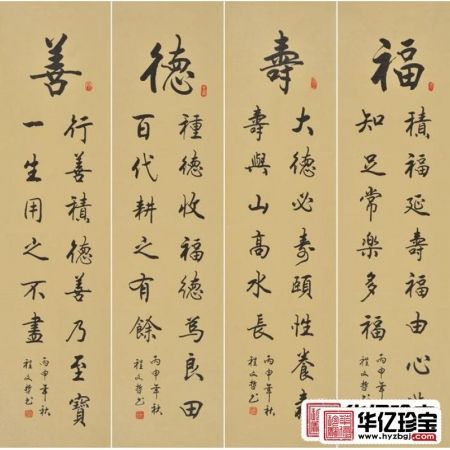 福
積福延壽福由心
知足常樂多福
丙申年秋
壽
大德必壽頤性養
壽與山高水長
丙申年秋
程文哲书
德
種德收福德為良田
百代耕之有餘
丙申年秋
程文哲书
善
行善積德善乃至寶
一生用之不盡
丙申年秋
程文哲书
华亿珍宝
www.hyzbgj.com